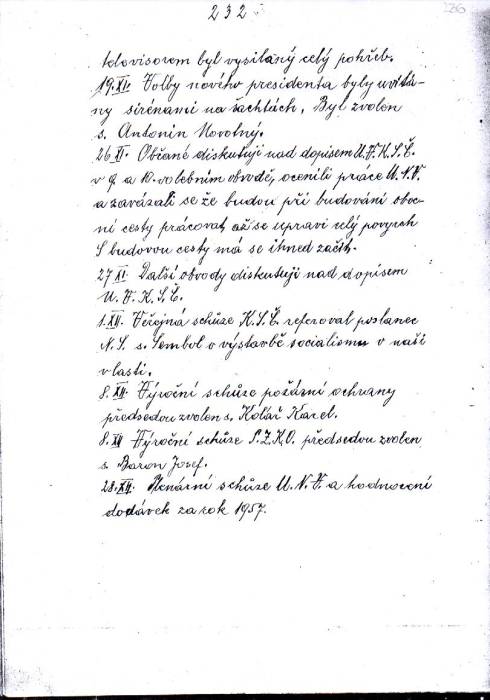 232
236
televisorem byl vysílaný celý pohřeb.
19.XI. Volby nového presidenta byly uvítá-
ny sirénami na šachtách. Byl zvolen
s. Antonín Novotný.
26 XI. Občané diskutují nad dopisem Ú.V.K.S.Č.
v 9 a 10. volebním obvodě, ocenili práce M.N.V.
a zavázali se že budou při budování oboc-
ní cesty pracovat, až se upraví celý povrch
S budovou cesty má se ihned začít.
27 XI. Další obvody diskutují nad dopisem
Ú.V.K.S.Č.
1.XII. Veřejná schůze K.S.Č. referoval poslanec
N.S. s. Sembol o výstavbě socialismu v naší
vlasti.
8. XII. Výroční schůze požární ochrany
předsedou zvolen s. Kolář Karel.
8. XII Výroční schůze S.Z.K.O. předsedou zvolen
s. Baron Josef.
28. XII. Plenární schůze M.N.V. a hodnocení
dodávek za rok 1957.